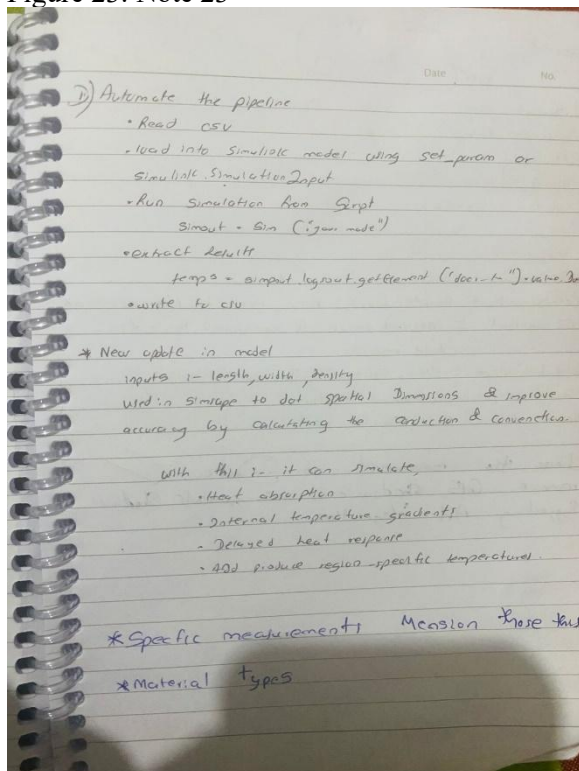 Figure 25: Note 25
Date No.
D) Automate the pipeline
• Read csv
• load into Simulink model using set_param or
Simulink.SimulationInput
• Run Simulation from Script
Simout = Sim ("
• extract Results
temps = simout.logsout.getElement (
• write to csv
* New update in model
inputs :- length, width, density
used in simscape to dot spatial Dimensions & improve
accuracy by calculating the conduction & convenction.
with this :- it can simulate,
• Heat absorption
• Internal temperature gradients
• Delayed heat response
• And produce region-specific temperatures.
* Specfic measurements Mension those
* Material types